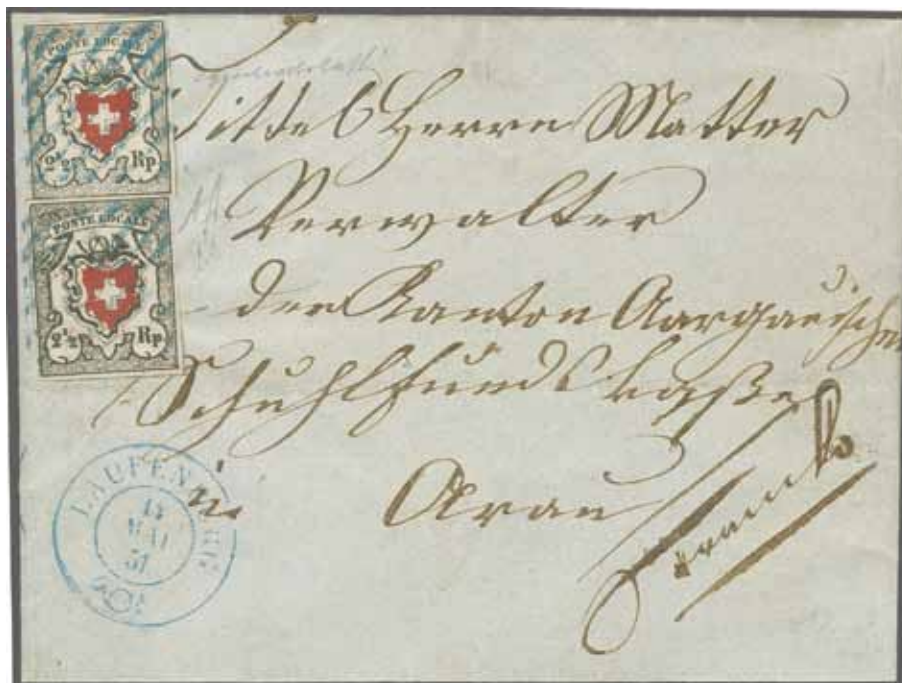 POSTE LOCALE
2½ Rp
POSTE LOCALE
2½ Rp
Tittel Herrn Matter
Verwalter
der Kanton Aargauischen
Schuhlfunds kaße
in Arau
franco
LAUFENBURG
MAI
51